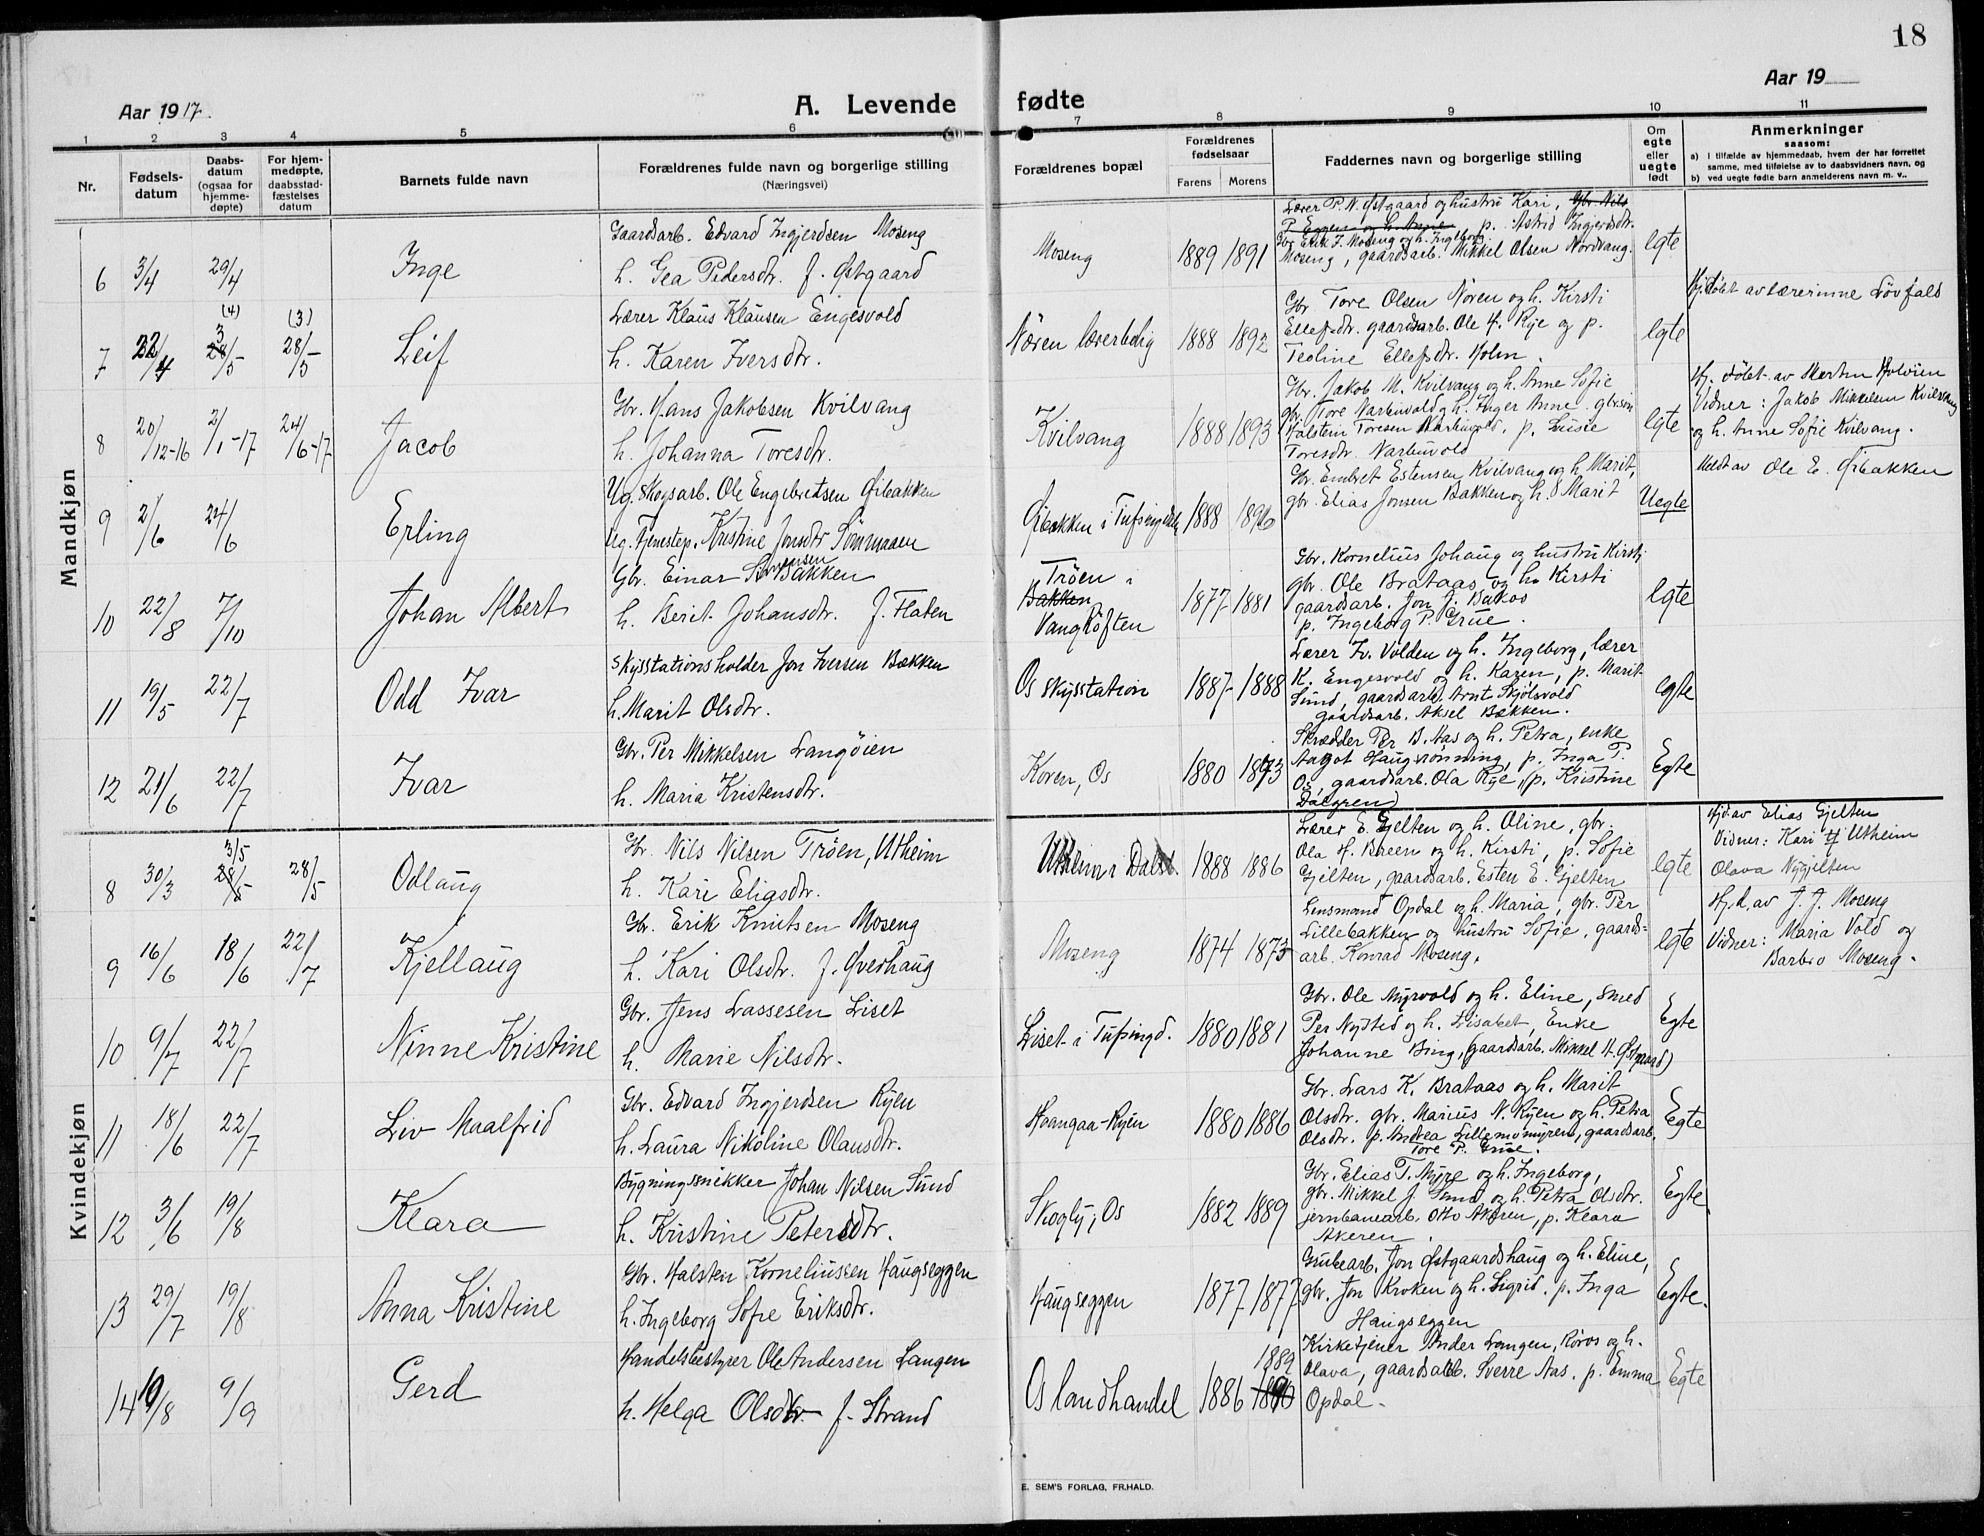 18
Aar 1917.
A. Levende fødte
Aar 19
1 2 3 4 5 6 7 8 9 10 11
Nr.
Fødsels-
datum
Daabs-
datum
(ogsaa for
hjemme-
døpte)
For hjem-
medøpte,
daabsstad-
fæstelses
datum
Barnets fulde navn
Forældrenes fulde navn og borgerlige stilling
(Næringsvei)
Forældrenes bopæl
Forældrenes
fødselsaar
Farens Morens
Faddernes navn og borgerlige stilling
Om
egte
eller
uegte
født
Anmerkninger
saasom:
a) i tilfælde av hjemmedaab, hvem der har forrettet
samme, med tilføielse av to daabsvidners navn, og
b) ved uegte fødte barn anmelderens navn m. v..
Mandkjøn
6 3/4 29/4 Inge
Gaardsarb. Edvard Ingjerdsen Moseng
h. Gea Pedersdtr. f. Østgaard
Moseng 1889 1891
Lærer P. N. Østgaard og hustru Kari, Gbr. Nils
P. Eggen og h. Anne p. Astrid Ingjerdsdtr.
Gbr. Erik J. Moseng og h. Ingeborg
Moseng, gaardsarb. Mikkel Olsen Nordvang.
egte
7 22/4 (4) 3/5 (3) 28/5 Leif
Lærer Klaus Klausen Engesvold
h. Karen Iversdtr.
Nøren lærerbolig 1888 1892
Gbr. Tore Olsen Nøren og h. Kirsti
Ellefsdtr. gaardsarb. Ole H. Rye og p.
Teoline Ellefsdtr. Holm.
egte
Hj.døbt av lærerinne Løvfald
8 20/12-16 2/1-17 24/6-17 Jacob
Gbr. Hans Jakobsen Kvilvang
h. Johanna Toresdtr.
Kvilvang 1888 1893
Gbr. Jakob M. Kvilvang og h. Anne Sofie
gbr. Tore Narbuvold og h. Inger Anne. gbr.søn
Halstein Toresen Narbuvold, p. Lusie
Toresdtr. Narbuvold
egte
Hj. døbt av Morten Holøien
Vidner: Jakob Mikkelsen Kvilvang
og h. Anne Sofie Kvilvang.
9 2/6 24/6 Erling
Ug. Skogsarb. Ole Engebretsen Øibakken
Ug. Tjenestep. Kristine Jonsdtr Sømmaaen
Øibakken i Tufsingdalen 1888 1896
Gbr. Embret Estensen Kvilvang og h. Marit,
gbr. Elias Jonsen Bakken og h. Marit
Uegte
Meldt av Ole E. Øibakken
10 22/8 7/10 Johan Albert
Gbr. Einar Bakken
h. Berit Johansdtr. f. Flaten
Trøen i
Bakken
Vangrøften 1877 1881
Gbr. Kornelius Johaug og hustru Kirsti
gbr. Ole Brataas og h. Kirsti
gaardsarb. Jon J. Bakos
p. Ingeborg P. Grue.
egte
11 19/5 22/7 Odd Ivar
Skysstationsholder Jon Iversen Bakken
h. Marit Olsdtr.
Os skysstation 1887 1888
Lærer Iv. Volden og h. Ingeborg, lærer
K. Engesvold og h. Karen, p. Marit
Sund, gaardsarb. Arnt Skjølsvold
gaardsarb. Aksel Bakken.
egte
12 21/6 22/7 Ivar
Gbr. Per Mikkelsen Langøien
h. Maria Kristensdtr.
Koren, Os 1880 1873
Skrædder Per B. Aas og h. Petra, enke
Aagot Haugrønning, p. Inga P.
Os, gaardsarb. Ola Rye, (p. Kristine
Dalgren)
Egte
Kvindekjøn
8 30/3 3/5 28/5 28/5 Odlaug
Gbr. Nils Nilsen Trøen, Utheim
h. Kari Eliasdtr.
Utheim i Dalsb. 1888 1886
Lærer E. Gjelten og h. Oline, gbr.
Ola H. Breen og h. Kirsti, p. Sofie
Gjelten, gaardsarb. Esten E. Gjelten
egte
Hjd. av Elias Gjelten
Vidner: Kari Utheim
Olava Nygjelten
9 16/6 18/6 22/7 Kjellaug
Gbr. Erik Knutsen Moseng
h. Kari Olsdtr. f. Øverhaug
Moseng 1874 1873
Lensmand Opdal og h. Maria, gbr. Per
Lillebakken og hustru Sofie, gaards-
arb. Konrad Moseng.
egte
Hj.d. av J. J. Moseng
Vidner: Maria Vold og
Barbro Moseng.
10 9/7 22/7 Ninne Kristine
Gbr. Jens Lassesen Liset
h. Marie Nilsdtr.
Liset i Tufsingd. 1880 1881
Gbr. Ole Myrvold og h. Eline, smed
Per Nysted og h. Lisabet, Enke
Johanne Bing, (gaardsarb. Mikkel H. Østgaard)
Egte
11 18/6 22/7 Liv Maalfrid
Gbr. Edvard Ingjerdsen Ryen
h. Laura Nikoline Olausdtr.
Hvangaa-Ryen 1880 1886
Gbr. Lars K. Brataas og h. Marit
Olsdtr. gbr. Marius N. Ryen og h. Petra
Olsdtr. p. Andrea Lillemomyren, gaardsarb.
Tore P. Grue.
Egte
12 3/6 19/8 Klara
Bygningssnikker Johan Nilsen Sund
h. Kristine Petersdtr.
Skogly, Os 1882 1889
Gbr. Elias T. Myre og h. Ingeborg,
gbr. Mikkel J. Sund og h. Petra Olsdtr.
jernbanearb. Otto Akeren, p. Klara
Akeren.
Egte
13 29/7 19/8 Anna Kristine
Gbr. Halsten Korneliussen Haugseggen
h. Ingeborg Sofie Eriksdtr.
Haugseggen 1877 1877
Grubearb. Jon Østgaardshaug og h. Eline,
gbr. Jon Kroken og h. Sigrid. p. Inga
Haugseggen
Egte.
14 10/8 9/9 Gerd
Handelsbestyrer Ole Andersen Langen
h. Helga Olsdtr. f. Strand
Os landhandel 1886 1889 1890
Kirketjener Ander Langen, Røros og h.
Olava, gaardsarb. Sverre Aas. p. Emma
Opdal.
Egte
E. SEM'S FORLAG, FR.HALD.